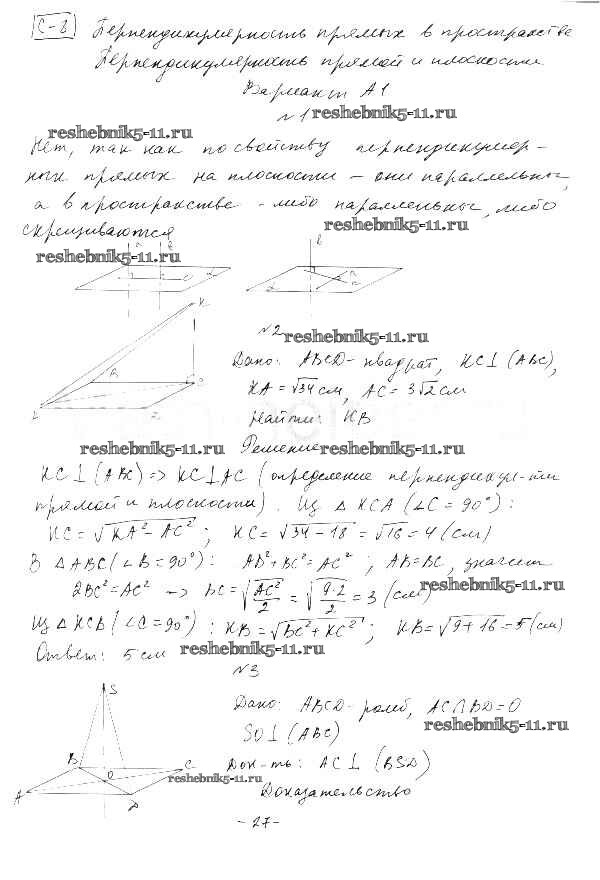 С-8 Перпендикулярность прямых в пространстве
Перпендикулярность прямой и плоскости
Вариант А1
№1 reshebnik5-11.ru
reshebnik5-11.ru
Нет, так как по свойству перпендикуляр-
ных прямых на плоскости – они параллельны,
а в пространстве - либо параллельны, либо
скрещиваются
reshebnik5-11.ru
reshebnik5-11.ru
№2
reshebnik5-11.ru
Дано: ABCD - квадрат, KC⊥(ABC),
KA = √34 см, AC = 3√2 см
Найти: KB
reshebnik5-11.ru Решение reshebnik5-11.ru
KC⊥(ABC) => KC⊥AC (определение перпендикул-ти
прямой и плоскости). Из △KCA (∠C = 90°):
KC = √KA² - AC²; KC = √34 - 18 = √16 = 4 (см)
В △ABC (∠B = 90°): AB² + BC² = AC²; AB = BC, значит
2BC² = AC² → BC = √AC²/2 = √9·2/2 = 3 (см) reshebnik5-11.ru
Из △KCB (∠C = 90°): KB = √BC² + KC²; KB = √9 + 16 = 5 (см)
Ответ: 5 см reshebnik5-11.ru
№3
S
Дано: ABCD - ромб, AC∩BD = O
reshebnik5-11.ru
SO⊥(ABC)
B C O
reshebnik5-11.ru
Док-ть: AC⊥(BSD)
A D
Доказательство
- 27 -